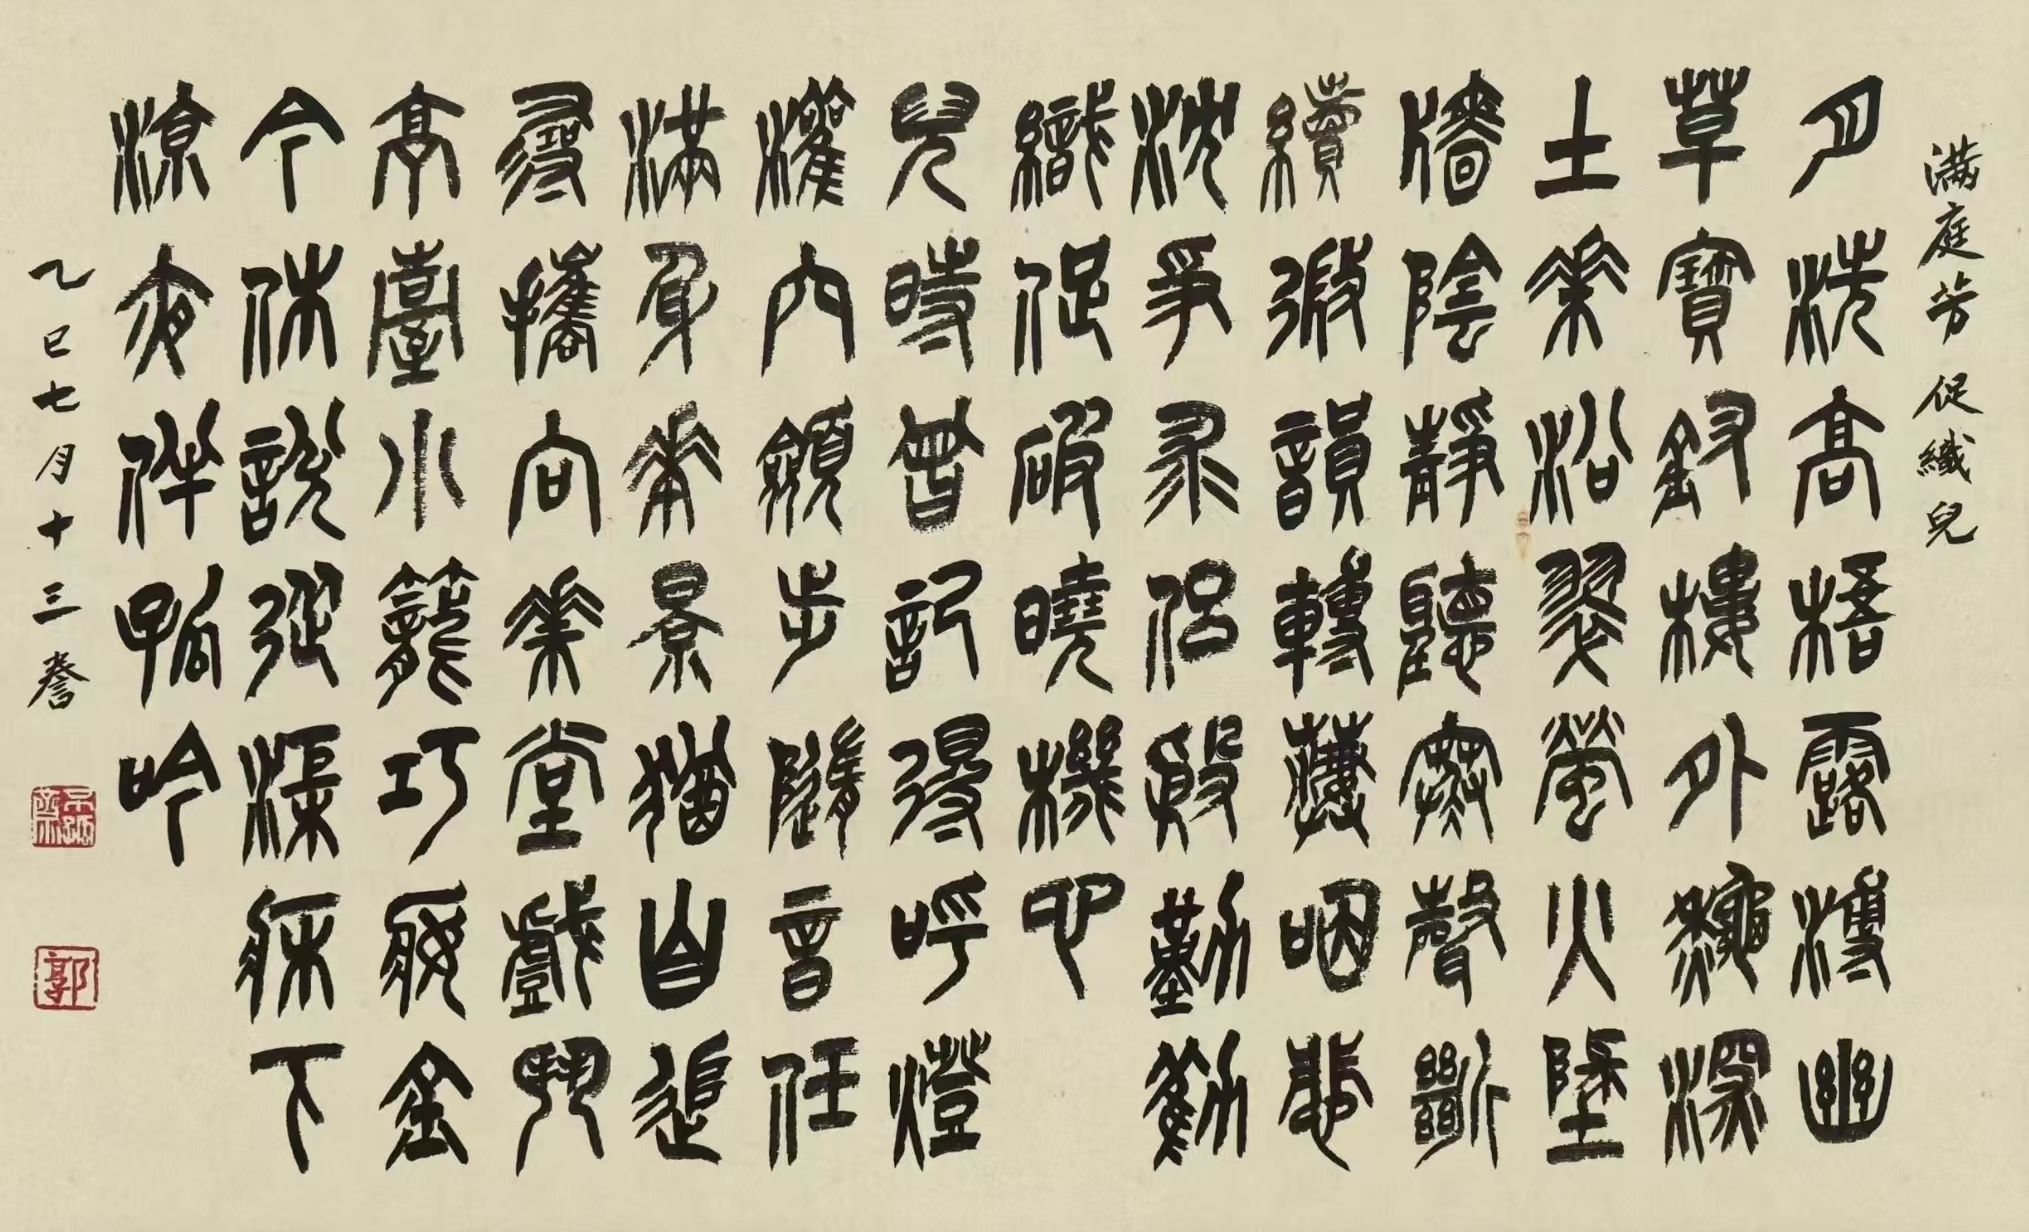 滿庭芳 促織兒
月洗高梧露漙幽
草寶釵樓外龝深
土華沿翠螢火墜
牆陰靜聽寒聲斷
續微韻轉淒咽悲
沈爭求侶殷勤勸
織促破曉機心
兒時曾記得呼燈
灌穴斂步隨音任
滿身華景猶自追
尋攜向華堂戲鬥
亭臺小籠巧妝金
今休說從渠牀下
涼夜伴孤吟
乙巳七月十三
郭